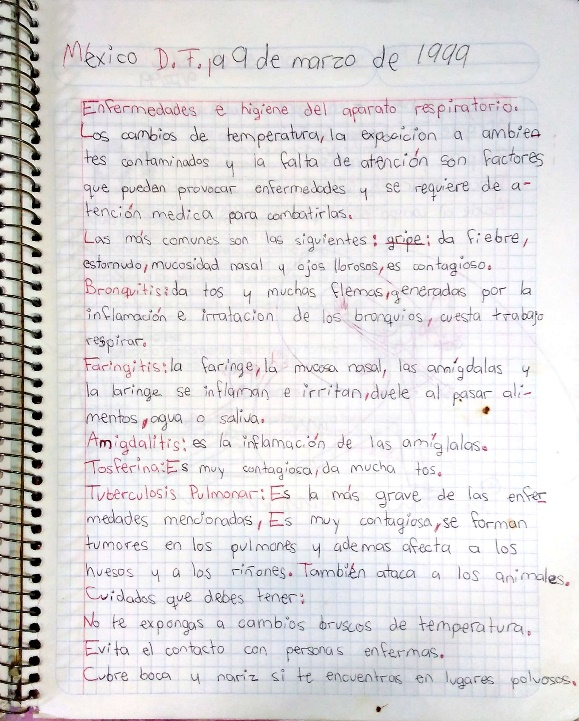 México D.F., a 9 de marzo de 1999
Enfermedades e higiene del aparato respiratorio.
Los cambios de temperatura, la exposicion a ambien
tes contaminados y la falta de atención son factores
que pueden provocar enfermedades y se requiere de a-
tención medica para combatirlas.
Las más comunes son las siguientes: gripe: da fiebre,
estornudo, mucosidad nasal y ojos llorosos, es contagioso.
Bronquitis: da tos y muchas flemas, generadas por la
inflamación e irratacion de los bronquios, cuesta trabajo
respirar.
Faringitis: la faringe, la mucosa nasal, las amígdalas y
la laringe se inflaman e irritan, duele al pasar ali-
mentos, agua o saliva.
Amigdalitis: es la inflamación de las amíglalas.
Tosferina: Es muy contagiosa, da mucha tos.
Tuberculosis Pulmonar: Es la más grave de las enfer
medades mencionadas, Es muy contagiosa, se forman
tumores en los pulmones y ademas afecta a los
huesos y a los riñones. También ataca a los animales.
Cuidados que debes tener:
No te expongas a cambios bruscos de temperatura.
Evita el contacto con personas enfermas.
Cubre boca y nariz si te encuentras en lugares polvosos.